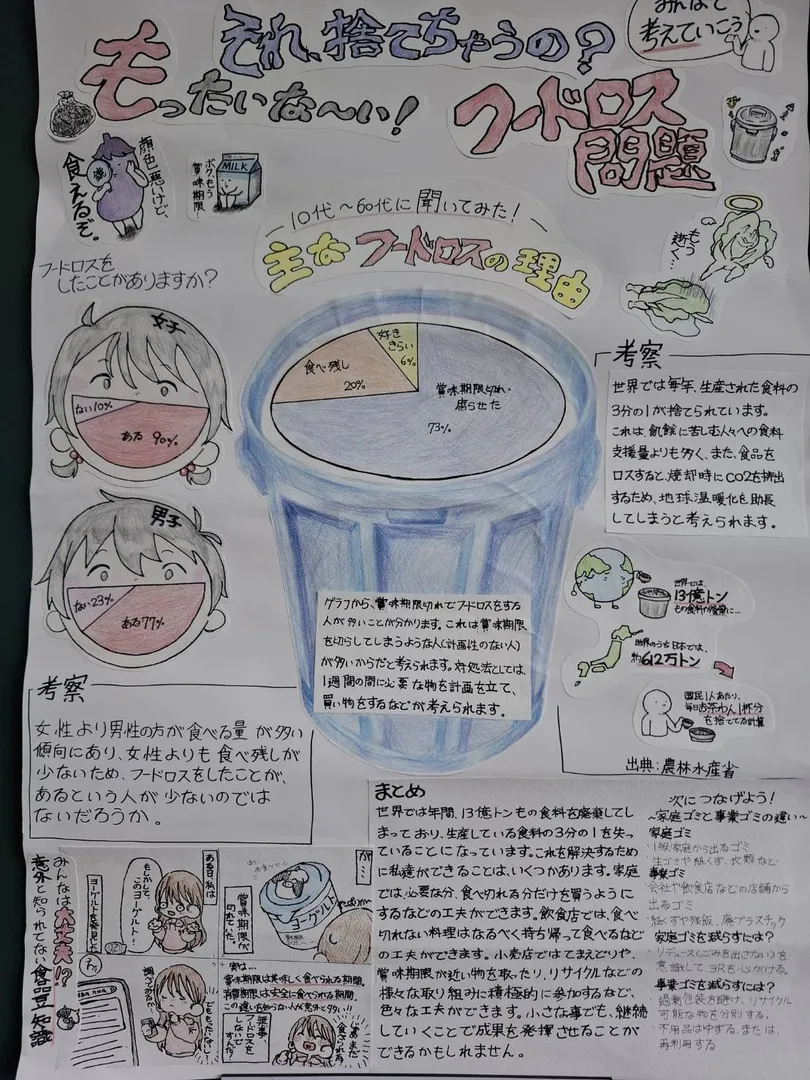 みんなで
考えていこう
それ、捨てちゃうの？
もったいな〜い！
フードロス
問題
顔色悪いけど、
食えるぞ。
MILK
ボク、もう
賞味期限…
もう
逝く…
ー10代〜60代に聞いてみた！ー
主なフードロスの理由
フードロスを
したことがありますか？
女子
ない10%
ある 90%
男子
ない23%
ある77%
好き
きらい
6%
食べ残し
20%
賞味期限切れ・
腐らせた
73%
グラフから、賞味期限切れでフードロスをする
人が多いことが分かります。これは賞味期限
を切らしてしまうような人(計画性のない人)
が多いからだと考えられます。対処法としては、
1週間の間に必要な物を計画を立て、
買い物をするなどが考えられます。
考察
世界では毎年、生産された食料の
3分の1が捨てられています。
これは、飢餓に苦しむ人々への食料
支援量よりも多く、また、食品を
ロスすると、焼却時にCO2を排出
するため、地球温暖化を助長
してしまうと考えられます。
世界では、
13億トン
もの食料の廃棄に…
世界のうち日本では、
約612万トン
国民1人あたり、
毎日お茶わん1杯分
を捨ててる計算
出典：農林水産省
考察
女性より男性の方が食べる量が多い
傾向にあり、女性よりも食べ残しが
少ないため、フードロスをしたことが、
あるという人が少ないのでは
ないだろうか。
まとめ
世界では年間、13億トンもの食料を廃棄してし
まっており、生産している食料の3分の1を失っ
ていることになっています。これを解決するため
に私達ができることは、いくつかあります。家庭
では、必要な分、食べ切れる分だけを買うように
するなどの工夫ができます。飲食店では、食べ
切れない料理はなるべく持ち帰って食べるなど
の工夫ができます。小売店ではてまえどりや、
賞味期限が近い物を取ったり、リサイクルなどの
様々な取り組みに積極的に参加するなど、
色々な工夫ができます。小さな事でも、継続
していくことで成果を発揮させることが
できるかもしれません。
次につなげよう！
〜家庭ゴミと事業ゴミの違い〜
家庭ゴミ
一般家庭から出るゴミ
生ゴミや紙くず、衣類など
事業ゴミ
会社や飲食店などの店舗から
出るゴミ
紙くずや残飯、廃プラスチック
家庭ゴミを減らすには？
リデュース(ごみを出さない)を
意識して、3Rを心がける。
事業ゴミを減らすには？
過剰包装を避け、リサイクル
可能な物を分別する。
不用品はゆずる、または、
再利用する
みんなは大丈夫!?
意外と知られてない食品豆知識
ある日、私は
ヨーグルトを発見した
もしかして、
このヨーグルト…
が…
ヨーグルト
賞味期限が
切れていた。
でももったいない
調べてみるか
実は…
賞味期限は美味しく食べられる期間、
消費期限は安全に食べられる期間。
この違いを知らない人が意外と多い!!
無事
フードロスを
しないで
すんだ!